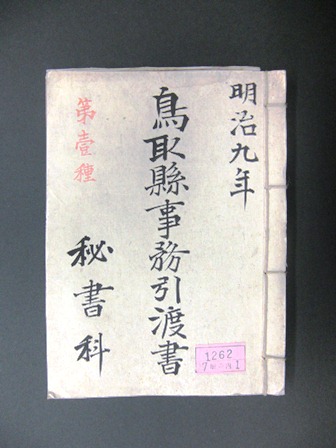 明治九年
鳥取縣事務引渡書
第壹種
秘書科
1262